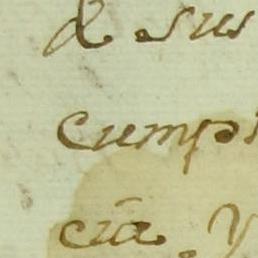 de sus
cumpl
cia y